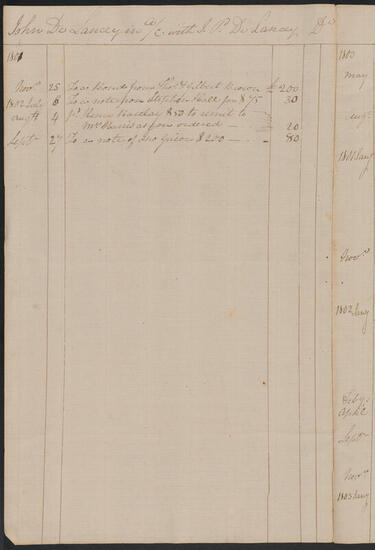 John De Lancey in a/c with J. P. De Lancey, Dr
1801
Novr 25 To a Bond from Thos & Gilbert Brown £ 200
1802 July 8 To a note from Stephen Hall for $75 30
augt 4 pd Henry Barclay $50 to remit to
Mr as you ordered 20
Septr 27 To a note of Jno Guion $200 80
1800
may
augt
1801 Jany
Novr
1802 Jany
Feby
April
Septr
Novr
1803 Jany